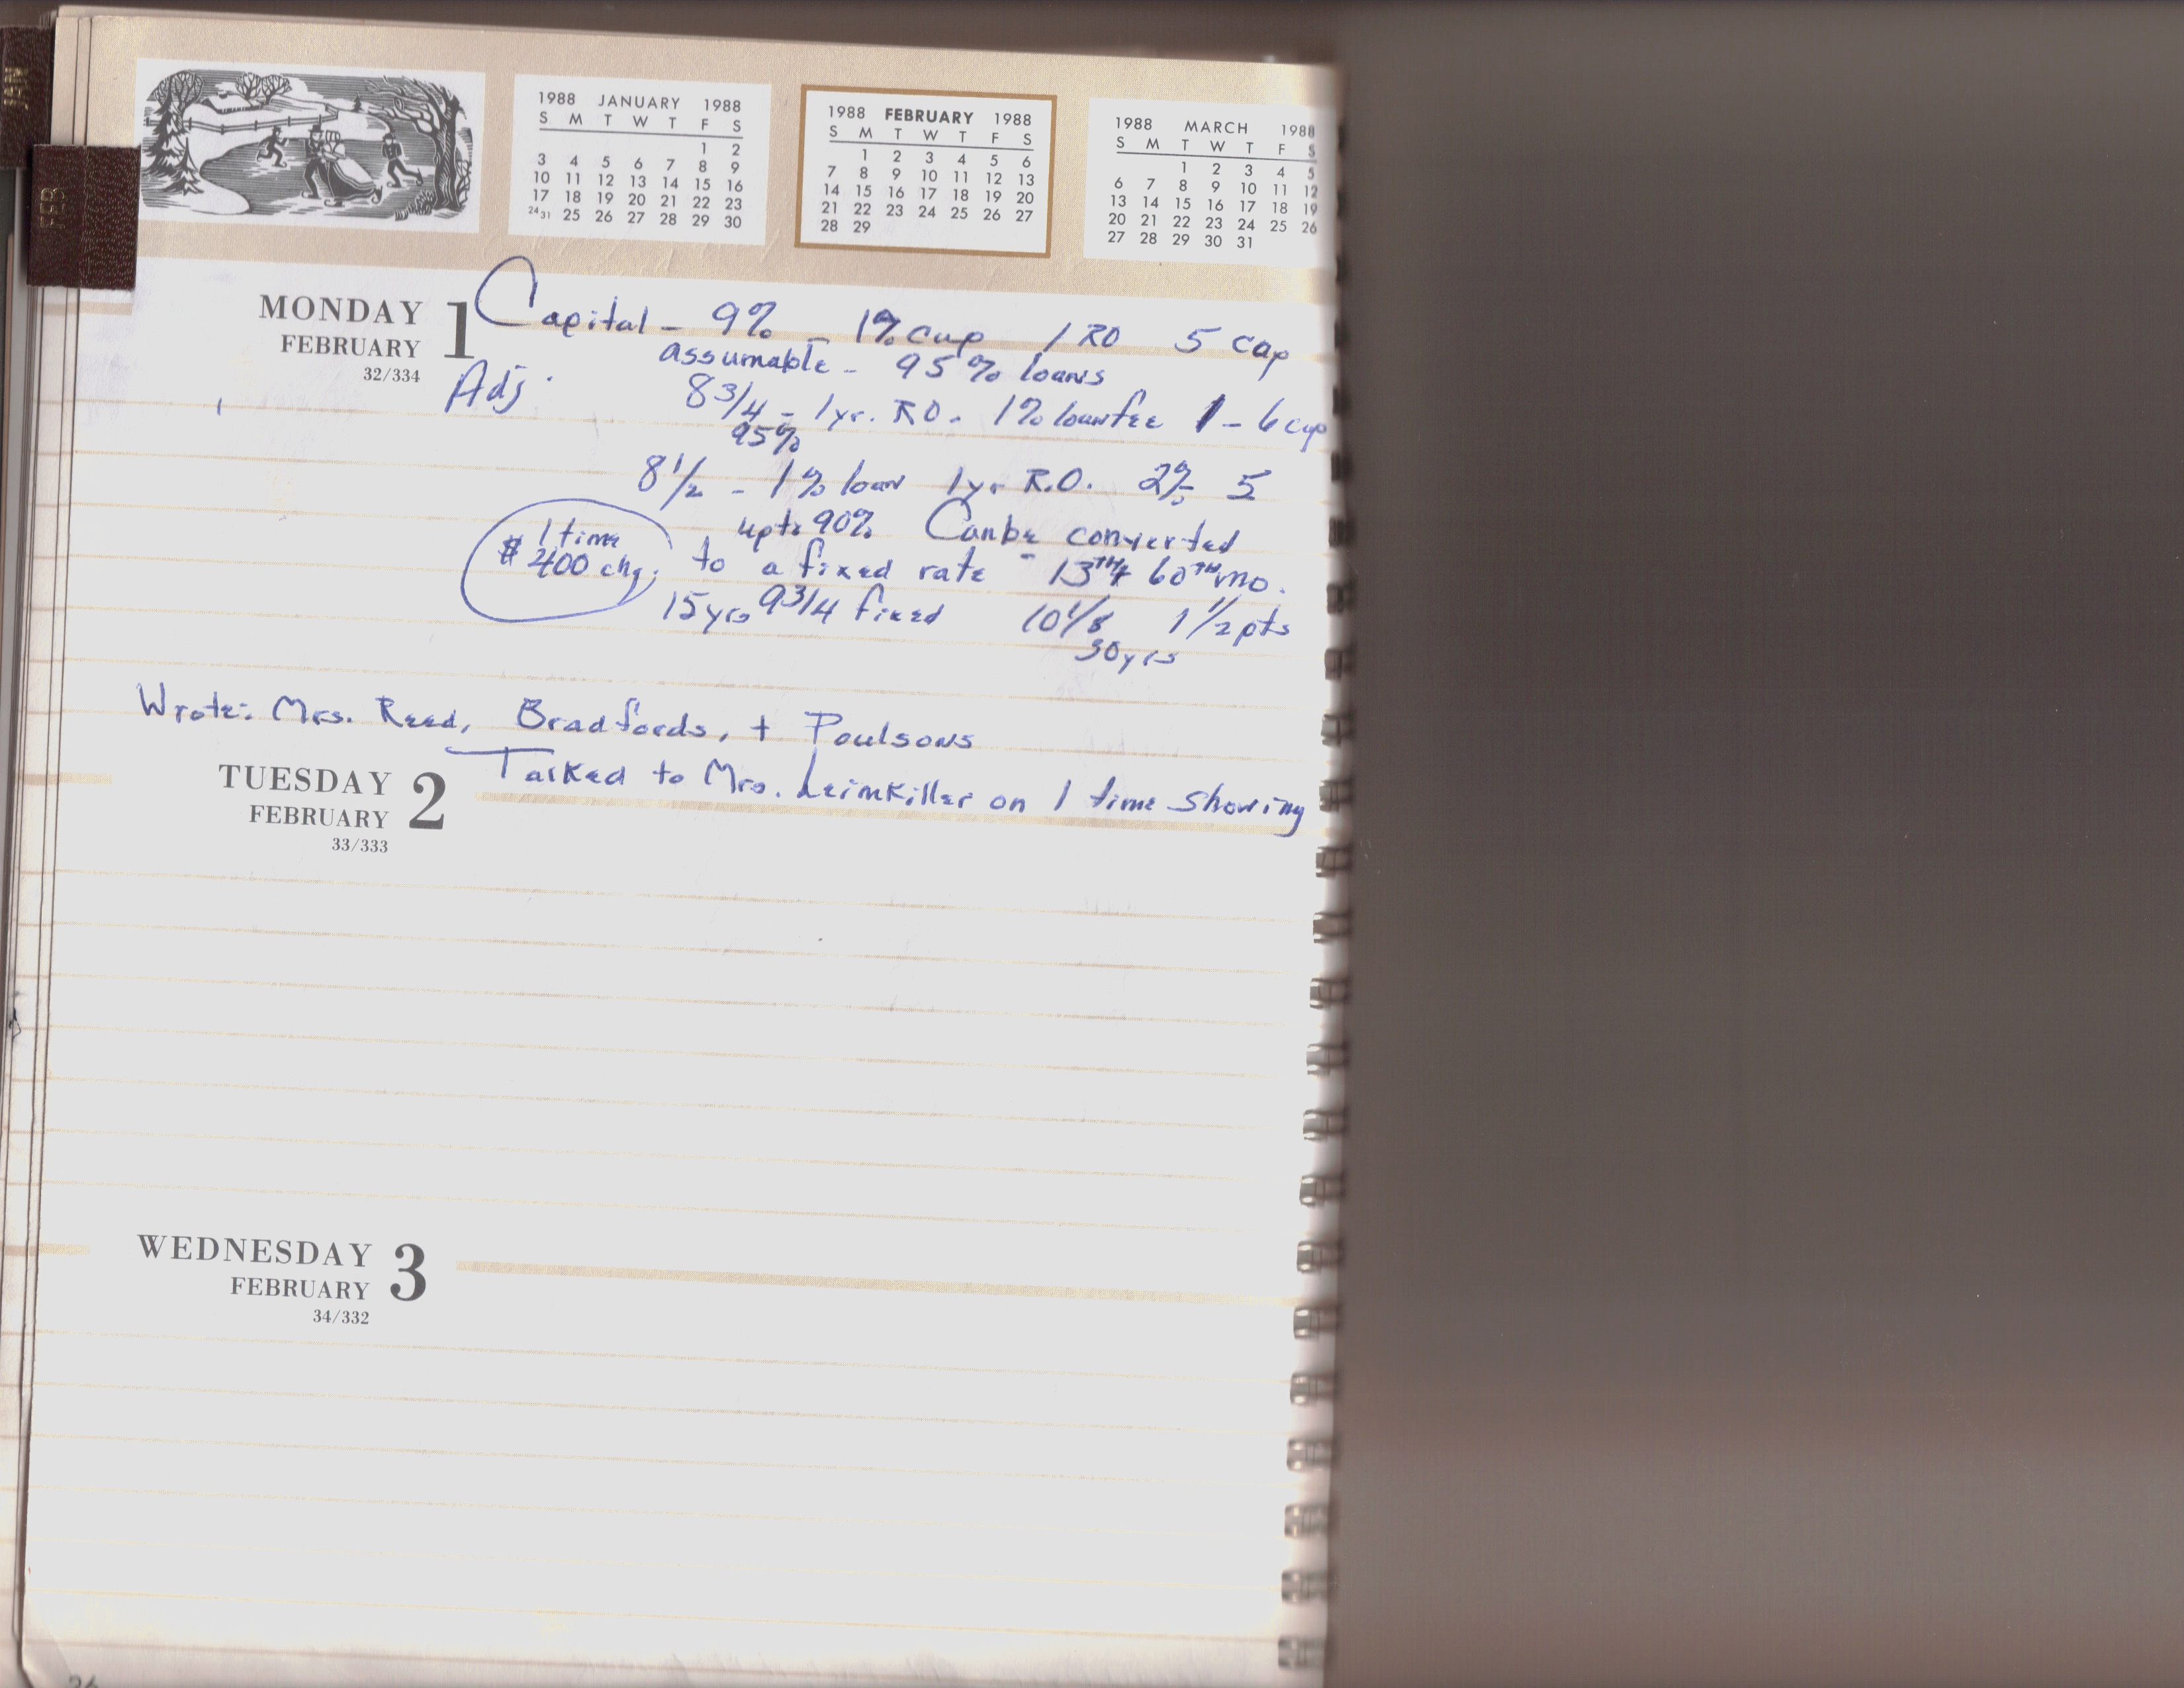 JAN
FEB
1988 JANUARY 1988
S M T W T F S
1 2
3 4 5 6 7 8 9
10 11 12 13 14 15 16
17 18 19 20 21 22 23
24 31 25 26 27 28 29 30
1988 FEBRUARY 1988
S M T W T F S
1 2 3 4 5 6
7 8 9 10 11 12 13
14 15 16 17 18 19 20
21 22 23 24 25 26 27
28 29
1988 MARCH 1988
S M T W T F S
1 2 3 4 5
6 7 8 9 10 11 12
13 14 15 16 17 18 19
20 21 22 23 24 25 26
27 28 29 30 31
MONDAY 1
FEBRUARY
32/334
Capital - 9% - 1% cap 1 RO 5 cap
assumable - 95% loans
Adj. 8 3/4 - 1 yr. RO. 1% loan fee 1 - 6 cap
95%
8 1/2 - 1% loan 1 yr R.O. 2% 5
upto 90% Can be converted
1 time
$400 chg. to a fixed rate - 13TH + 60TH mo.
15 yrs 9 3/4 fixed 10 1/8 1 1/2 pts
30 yrs
Wrote: Mrs. Reed, Bradfords, + Poulsons
TUESDAY 2
FEBRUARY
33/333
Talked to Mrs. Leimkiller on 1 time showing
WEDNESDAY 3
FEBRUARY
34/332